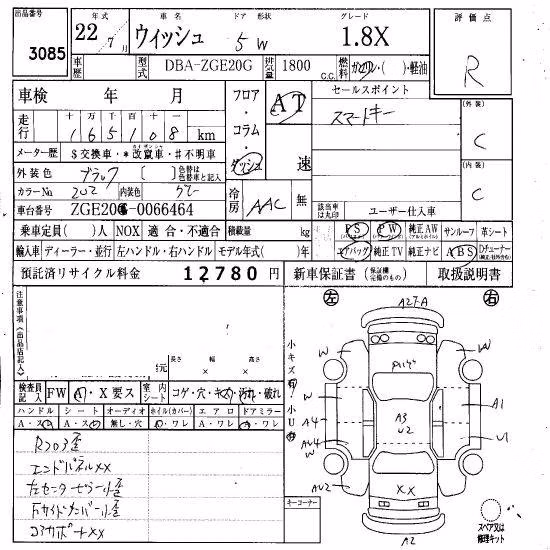 出品番号 3085
年式 22 7月
車名 ウィッシュ
ドア 形状 5 W
グレード 1.8X
評価点 R
車歴
型式 DBA-ZGE20G
排気量 1800 c.c.
燃料 ガソリン・( )・軽油
車検 年 月
フロア・コラム・ダッシュ
AT 速
セールスポイント
スマートキー
(外装) C
(内装) C
走行 十万 万 千 百 十
165108 km
メーター歴 $交換車・*改竄車・#不明車
外装色 ブラック 色替は色替車と記入
カラーNo. 202 内装色 グレー
車台番号 ZGE20G-0066464
冷房 AAC 無
該当車は丸印
ユーザー仕入車
乗車定員( )人 NOX 適合・不適合 積載量 kg
PS PW 純正AW サンルーフ 革シート
輸入車 ディーラー・並行 左ハンドル・右ハンドル モデル年式( )年
エアバッグ 純正TV 純正ナビ ABS Dチューナー
預託済リサイクル料金 12780 円
新車保証書(保証欄完備のもの) 取扱説明書
注意事項(出品店記入)
長さ 高さ
× ×
検査員記入 FW A・X要ス 室内シート コゲ・穴・キズ・汚れ・破れ
ハンドル シート オーディオ ホイル(カバー) エアロ ドアミラー
A・ス A・ス 無し・穴 A・ワレ A・ワレ A・ワレ
Rフロア歪
エンドパネルXX
左センターピラー小歪
コアサポートXX
左 右
小キズ 小U
A2
W
W
A4
A1
U1
AU2
A3
U2
XX
A2
キーコーナー
スペア又は修理キット